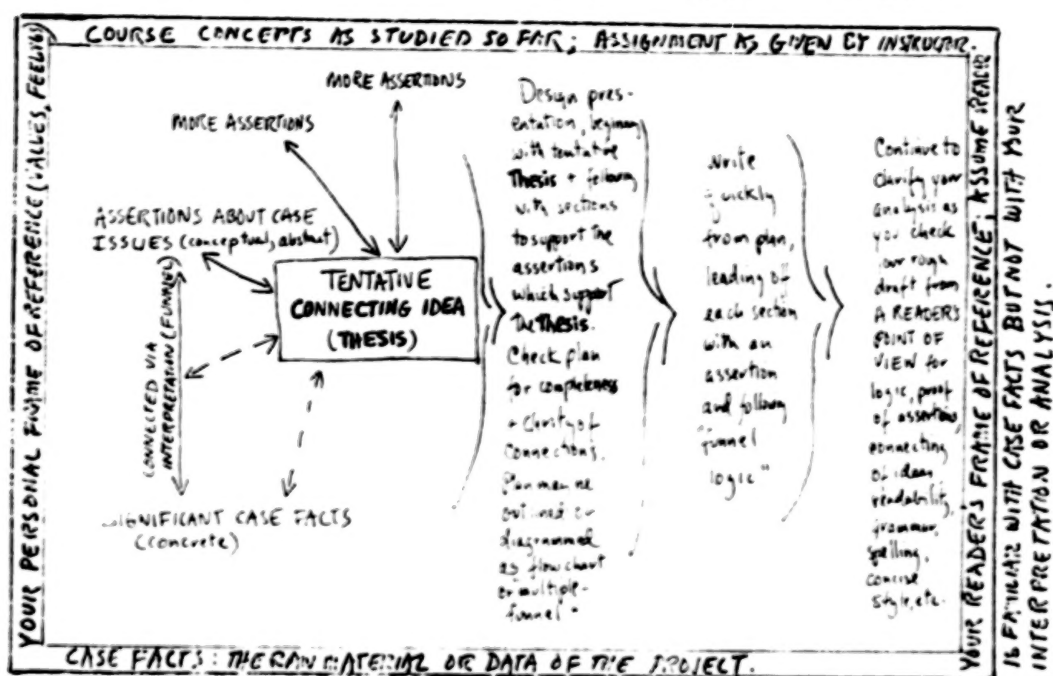 COURSE CONCEPTS AS STUDIED SO FAR; ASSIGNMENT AS GIVEN BY INSTRUCTOR.
YOUR PERSONAL FRAME OF REFERENCE (VALUES, FEELINGS)
MORE ASSERTIONS
MORE ASSERTIONS
ASSERTIONS ABOUT CASE
ISSUES (conceptual, abstract)
CONNECTED VIA
INTERPRETATION (FUNNEL)
TENTATIVE
CONNECTING IDEA
(THESIS)
SIGNIFICANT CASE FACTS
(concrete)
Design pres-
entation, beginning
with tentative
Thesis + following
with sections
to support the
assertions
which support
the Thesis.
Check plan
for completeness
+ Clarity of
Connections.
Plan may be
outlined or
diagrammed
as flow chart
or multiple-
funnel"
Write
quickly
from plan,
leading off
each section
with an
assertion
and following
"funnel
logic"
Continue to
clarify your
analysis as
you check
your rough
draft from
A READER'S
POINT OF
VIEW for
logic, proof
of assertions,
connecting
of ideas,
readability,
grammar,
spelling,
concise
style, etc.
YOUR READERS FRAME OF REFERENCE; ASSUME READER
IS FAMILIAR WITH CASE FACTS BUT NOT WITH YOUR
INTERPRETATION OR ANALYSIS.
CASE FACTS: THE RAW MATERIAL OR DATA OF THE PROJECT.